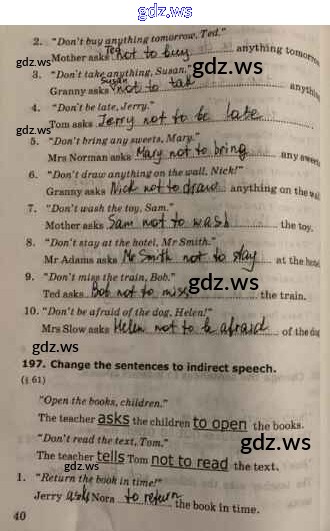 gdz.ws
2. "Don't buy anything tomorrow, Ted."
Mother asks Ted not to buy anything tomorrow
gdz.ws
3. "Don't take anything, Susan."
Granny asks Susan not to tak anythin
4. "Don't be late, Jerry."
gdz.ws
Tom asks Jerry not to be late
gdz.ws
5. "Don't bring any sweets, Mary."
Mrs Norman asks Mary not to bring any sweets
6. "Don't draw anything on the wall, Nick!"
Granny asks Nick not to draw anything on the wall
7. "Don't wash the toy, Sam."
Mother asks Sam not to wash the toy.
8. "Don't stay at the hotel, Mr Smith."
Mr Adams asks Mr Smith not to stay at the hotel
9. "Don't miss the train, Bob."
Ted asks Bob not to miss the train.
gdz.ws
10. "Don't be afraid of the dog, Helen!"
Mrs Slow asks Helen not to be afraid of the dog
gdz.ws
197. Change the sentences to indirect speech.
(§ 61)
"Open the books, children."
The teacher asks the children to open the books.
gdz.ws
"Don't read the text, Tom."
The teacher tells Tom not to read the text.
gdz.ws
1. "Return the book in time!"
Jerry asks Nora to return the book in time.
40
gdz.ws
gdz.ws